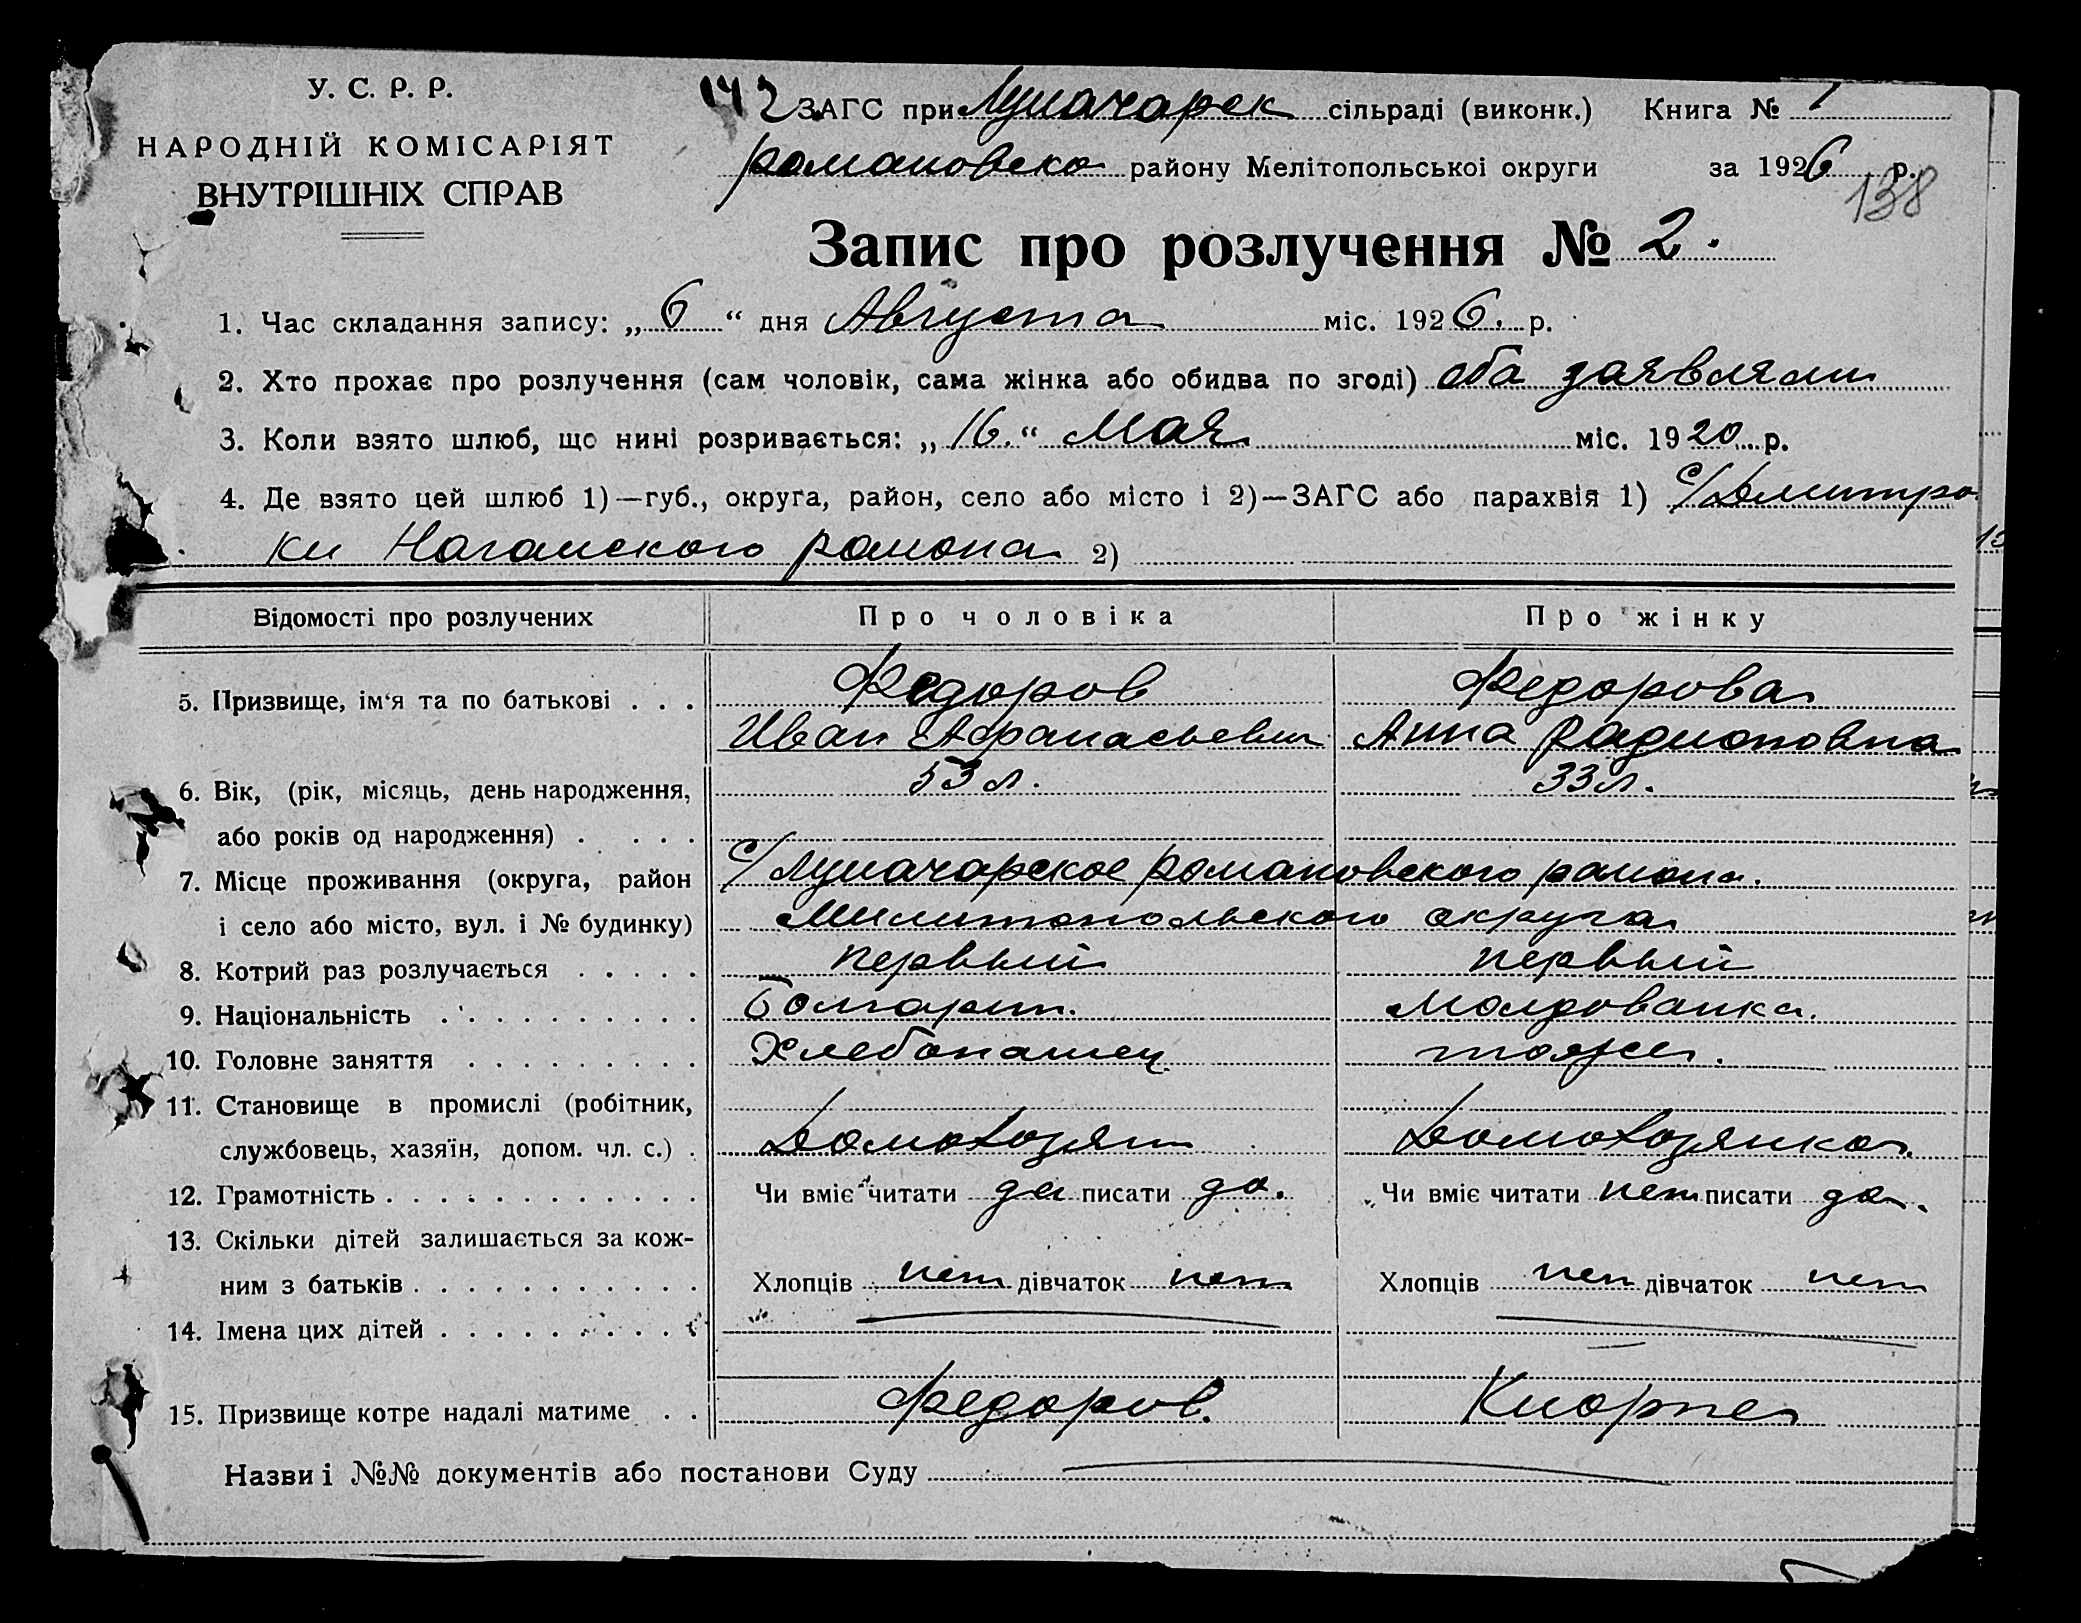 У. С. Р. Р.
НАРОДНІЙ КОМІСАРІЯТ
ВНУТРІШНІХ СПРАВ
142 ЗАГС при Луначарск сільраді (виконк.) Книга № 1
Романовско району Мелітопольської округи за 1926 р.
138
Запис про розлучення № 2.
1. Час складання запису: „ 6 “ дня Августа міс. 1926. р.
2. Хто прохає про розлучення (сам чоловік, сама жінка або обидва по згоді) оба заявляли
3. Коли взято шлюб, що нині розривається: „ 16. “ Мая міс. 1920 р.
4. Де взято цей шлюб 1)—губ., округа, район, село або місто і 2)—ЗАГС або парахвія 1) с/Дмитро
ки района 2)
Відомості про розлучених Про чоловіка Про жінку
5. Призвище, ім‘я та по батькові . . . Федоров Федорова
Иван Афанасьевич Анна Радионовна
6. Вік, (рік, місяць, день народження, 53 л. 33 л.
або років од народження) . . . . .
7. Місце проживання (округа, район с/Луначарское Романовского района.
і село або місто, вул. і № будинку) Милитопольского округа
8. Котрий раз розлучається . . . . . первый первый
9. Національність . . . . . . . . . . Болгарин. Молдованка.
10. Головне заняття . . . . . . . . . Хлебопашец тоже.
11. Становище в промислі (робітник,
службовець, хазяїн, допом. чл. с.) . Домохозяин Домохозянка.
12. Грамотність . . . . . . . . . . . . Чи вміє читати да писати да. Чи вміє читати нет писати да.
13. Скільки дітей залишається за кож-
ним з батьків . . . . . . . . . . . Хлопців нет дівчаток нет Хлопців нет дівчаток нет
14. Імена цих дітей . . . . . . . . . .
15. Призвище котре надалі матиме . . Федоров. Киорпе
Назви і №№ документів або постанови Суду